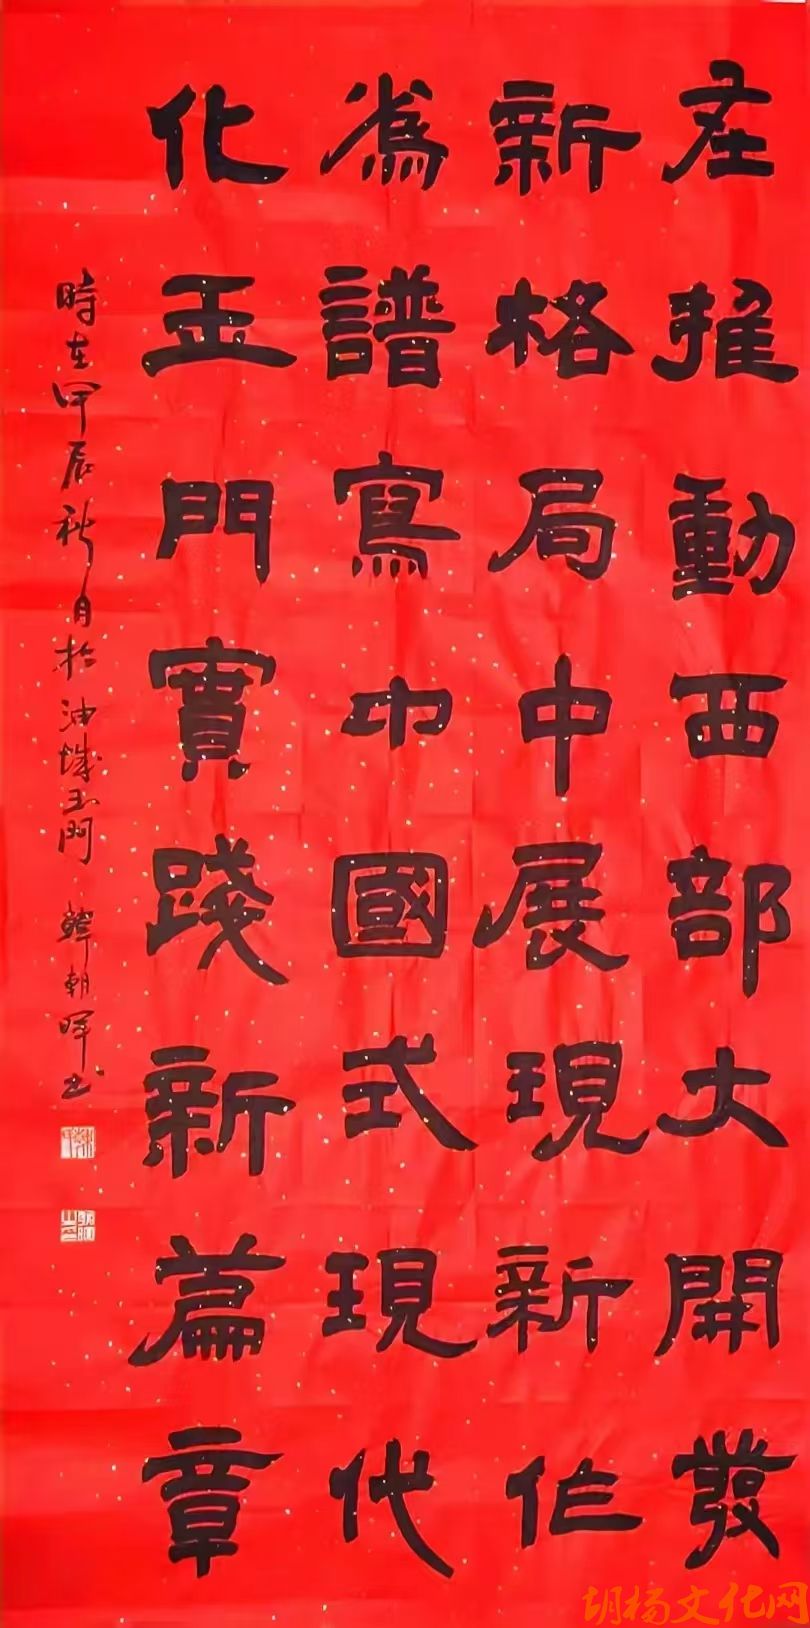 在推動西部大開發
新格局中展現新作
為譜寫中國式現代
化玉門實踐新篇章
時在甲辰秋月於油城玉門 韓朝暉書
胡杨文化网